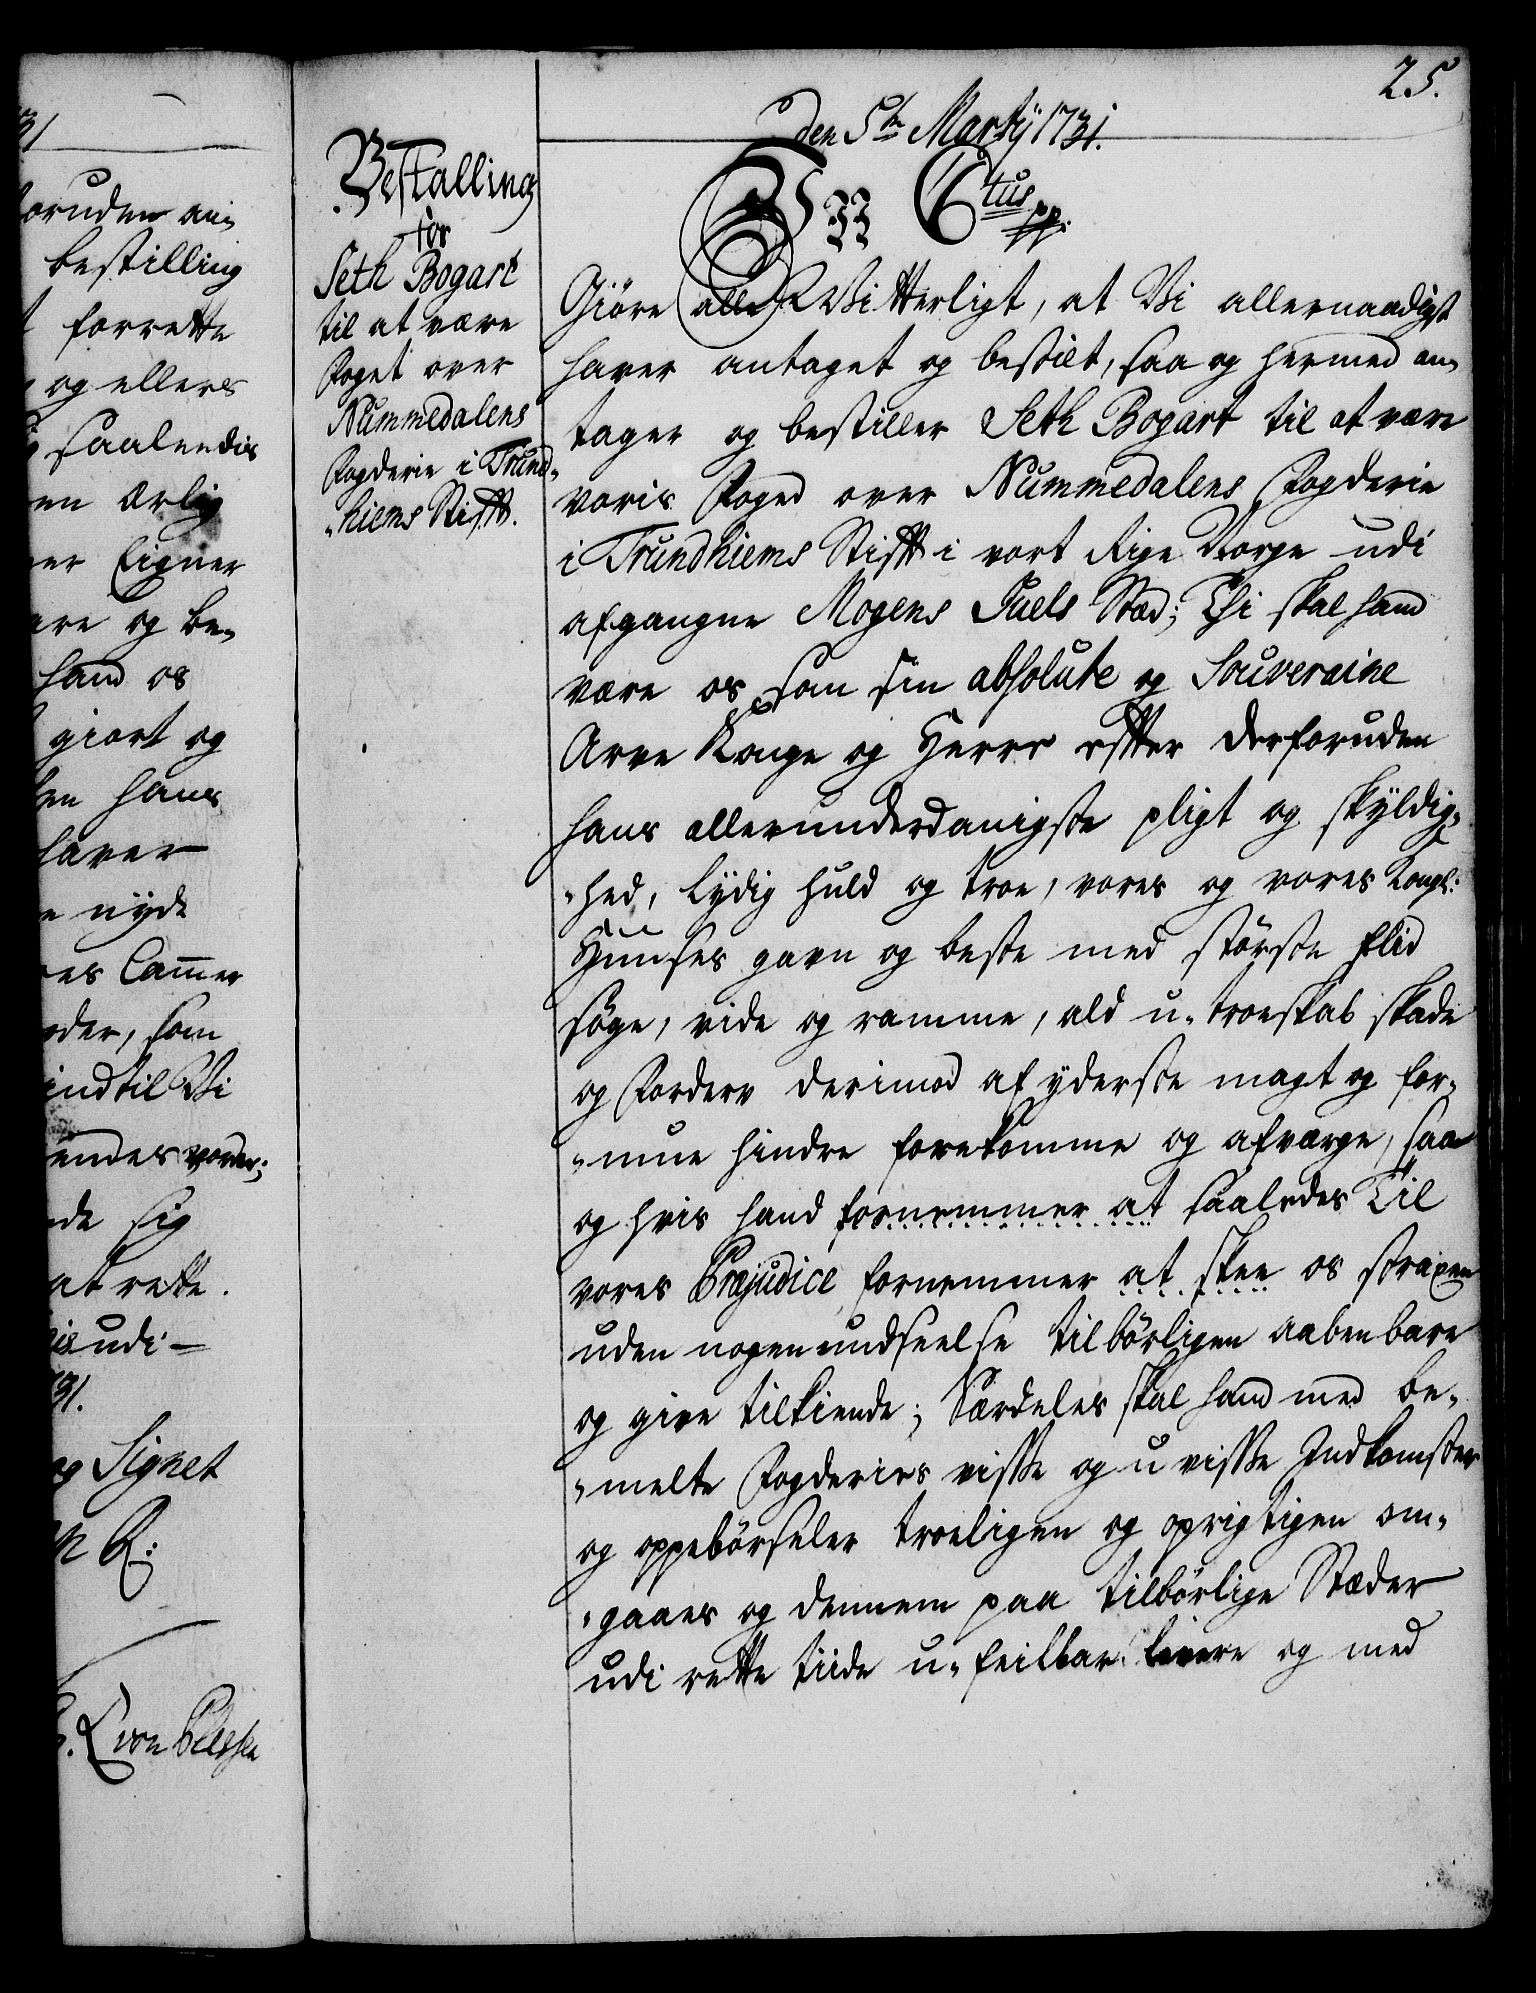 31
oruden an¬
bestilling
t forrette
og ellers
saaleedis
en ærlig
er Eigner
are og be¬
hand os
giort og
en hans
haver
e nyde
res Cammer
oder, som
indtil Vi
endes vorder;
de sig
at rette.
is udi
31.
og Signet
R:
C von Plessen
25.
den 5te Martij 1731.
Bestalling
for
Seth Bogart
til at være
Foget over
Nummedalens
Fogderie i Trund¬
¬hiems Stifft.
Ctus pp.
Giöre alle Vitterligt, at Vi allernaadigst
haver antaget og bestilt, saa og hermed an¬
tager og bestiller Seth Bogart til at være
voris Foged over Nummedalens Fogderie
i Trundhiems Stifft i vort Rige Norge udi
afgangne Mogens Juels Stæd; Thi skal hand
være os som sin absolute og Souveraine
Arve Konge og Herre effter Derforuden
hans allerunderdanigste pligt og skyldig¬
¬hed, lydig huld og troe, vores og vores Kongl:
Huuses gavn og beste med störste flid
söge, vide og ramme, ald u¬troeskab skade
og Forderv derimod af yderste magt og for¬
¬mue hindre forekomme og afværge, saa
og hvis hand fornemmer at saaledes Til
vores Præjudice fornemmer at skee os straxen
uden nogen undseelse tilbörligen aabenbare
og give tilkiende; Særdeles skal hand med be¬
¬melte Fogderies visse og u visse Indkomster
og oppebörseler troeligen og oprigtigen om¬
¬gaaes og dennem paa tilbörlige Stæder
udi rette tiide u¬feilbar levere og med